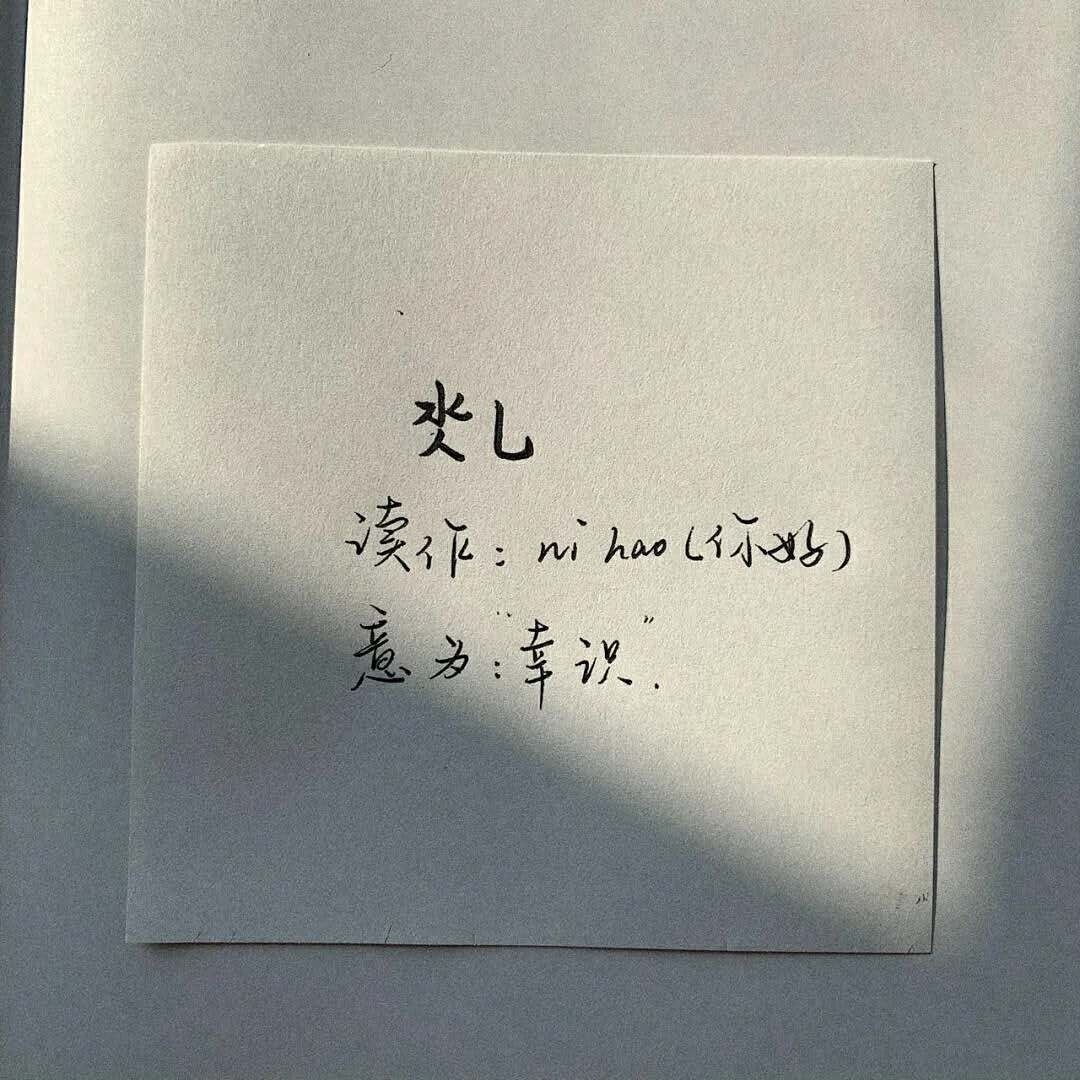 氼乚
读作：ni hao(你好)
意为："幸识".